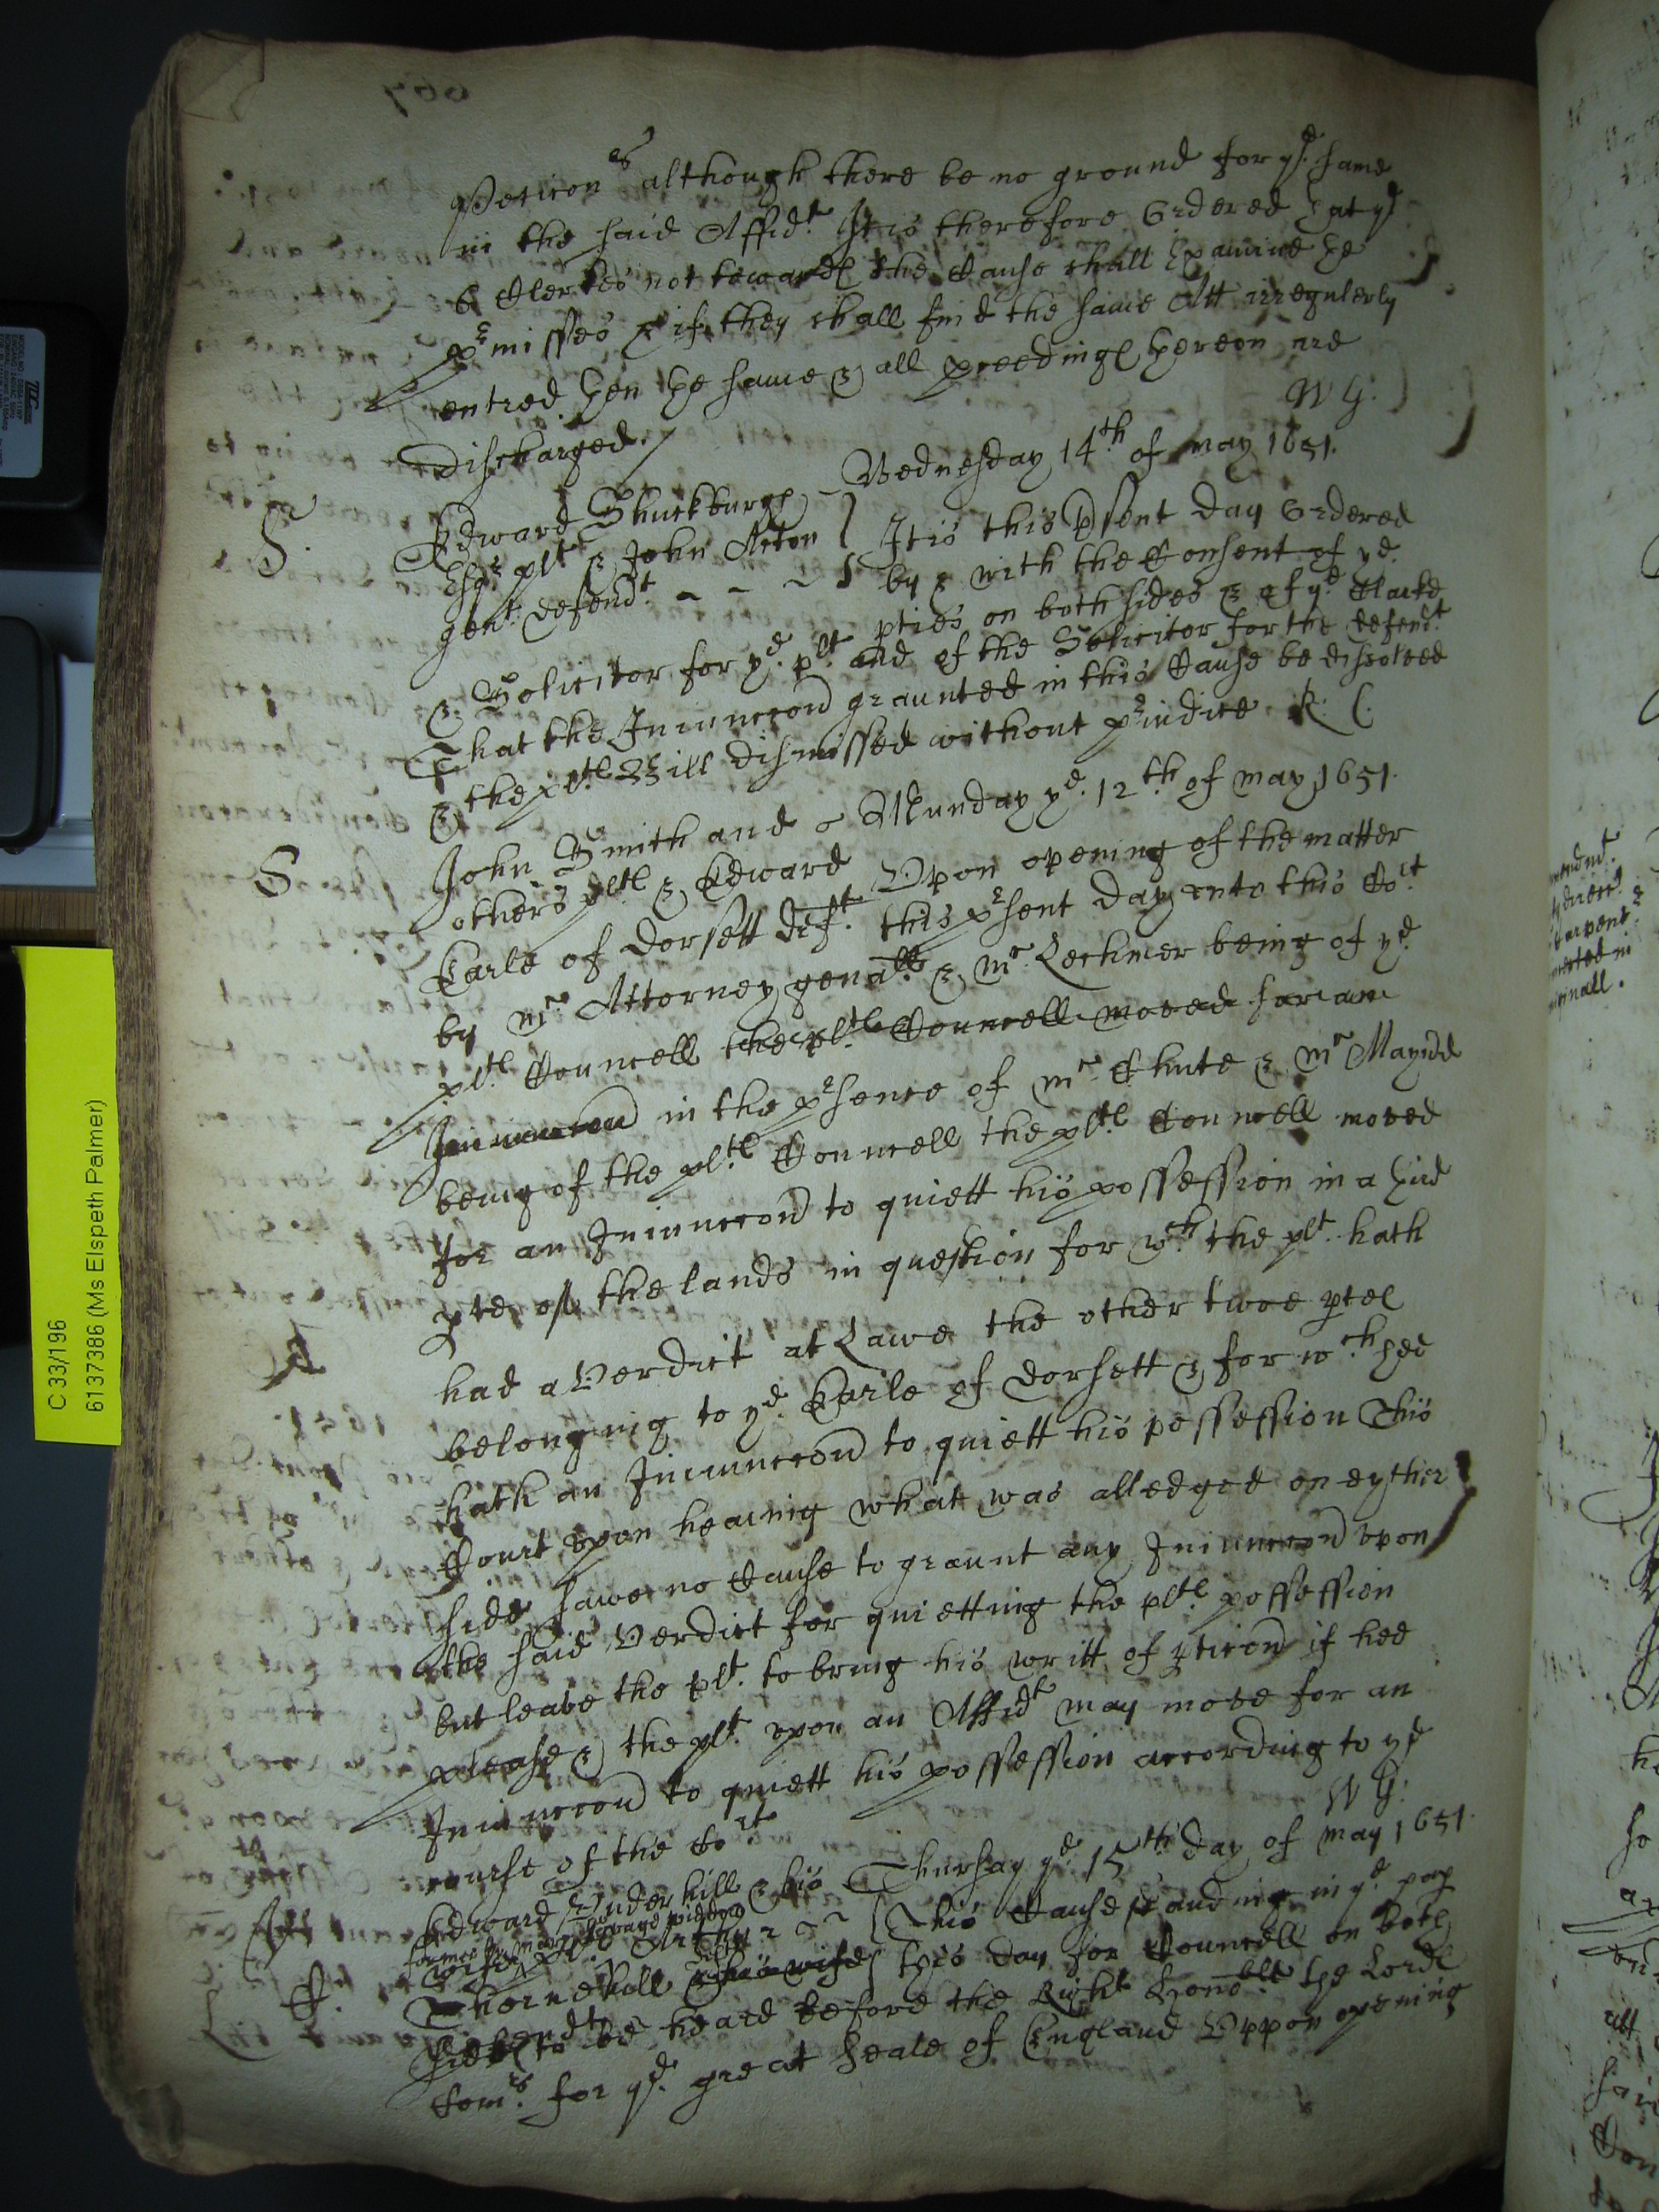 Peticon es although there be no ground for ye. same
in the said Affidt. It is therefore Ordered that ye
6 Clerkes not towards the Cause shall Examine the
prmisses & if they shall find the same Att irregulerly
entred then the same & all pceedings thereon are
Discharged./ W G.
S. Edward Shuckburgh - Wednesday 14th of may 1651.
Esqr plt & John Acton } It is this Psent day Ordered
gent. defendt. ~ - ~ by & with the Consent of ye.
pties on both sides & of ye Clarke
& Solicitor for ye. plt and of the Solicitor for the defendt
That the Iniunccon graunted in this Cause be dissolved
& the plts. Bill dismissed without priudice R. C.
S John Smith and o Munday ye. 12th of may 1651.
others plts & Edward Vpon opening of the matter
Earle of Dorsett deft. this prsent day vnto this Cort
by mr Attorney genall & mr. Lechmer being of ye
plts. Councell the plts. Councell moved for an
Iniunccon in the prsence of mr. Chute & mr Maynd
being of the plts. Councell the plts. Councell moved
for an Iniunccon to quiett his possession in a third
pte of the lands in question for wch the plt. hath
had a Verdict at Lawe the other twoe ptes
belonging to ye. Earle of Dorsett & for wch hee
hath an Iniunccon to quiett his possession This
Court vpon hearing what was alledged on eyther
side sawe no Cause to graunt any Iniunccon vpon
the said Verdict for quietting the plts. possession
but leave the plt. to bring his writt of pticon if hee
please & the plt. vpon an Affidt may move for an
Iniunccon to quiett his possession according to ye
course of the Cort W G.
Edward Underhill & his Thursay ye. 15th day of may 1651.
wife widdow plts. Arthur ~ ~ { This Cause standing in ye pap
Thornehull & his wife this day for Councell on both
defendts
sides to be heard before the Right honoble the Lords
Comrs. for ye. great Seale of England Vppon opening
C 33/196
6137386 (Ms Elspeth Palmer)